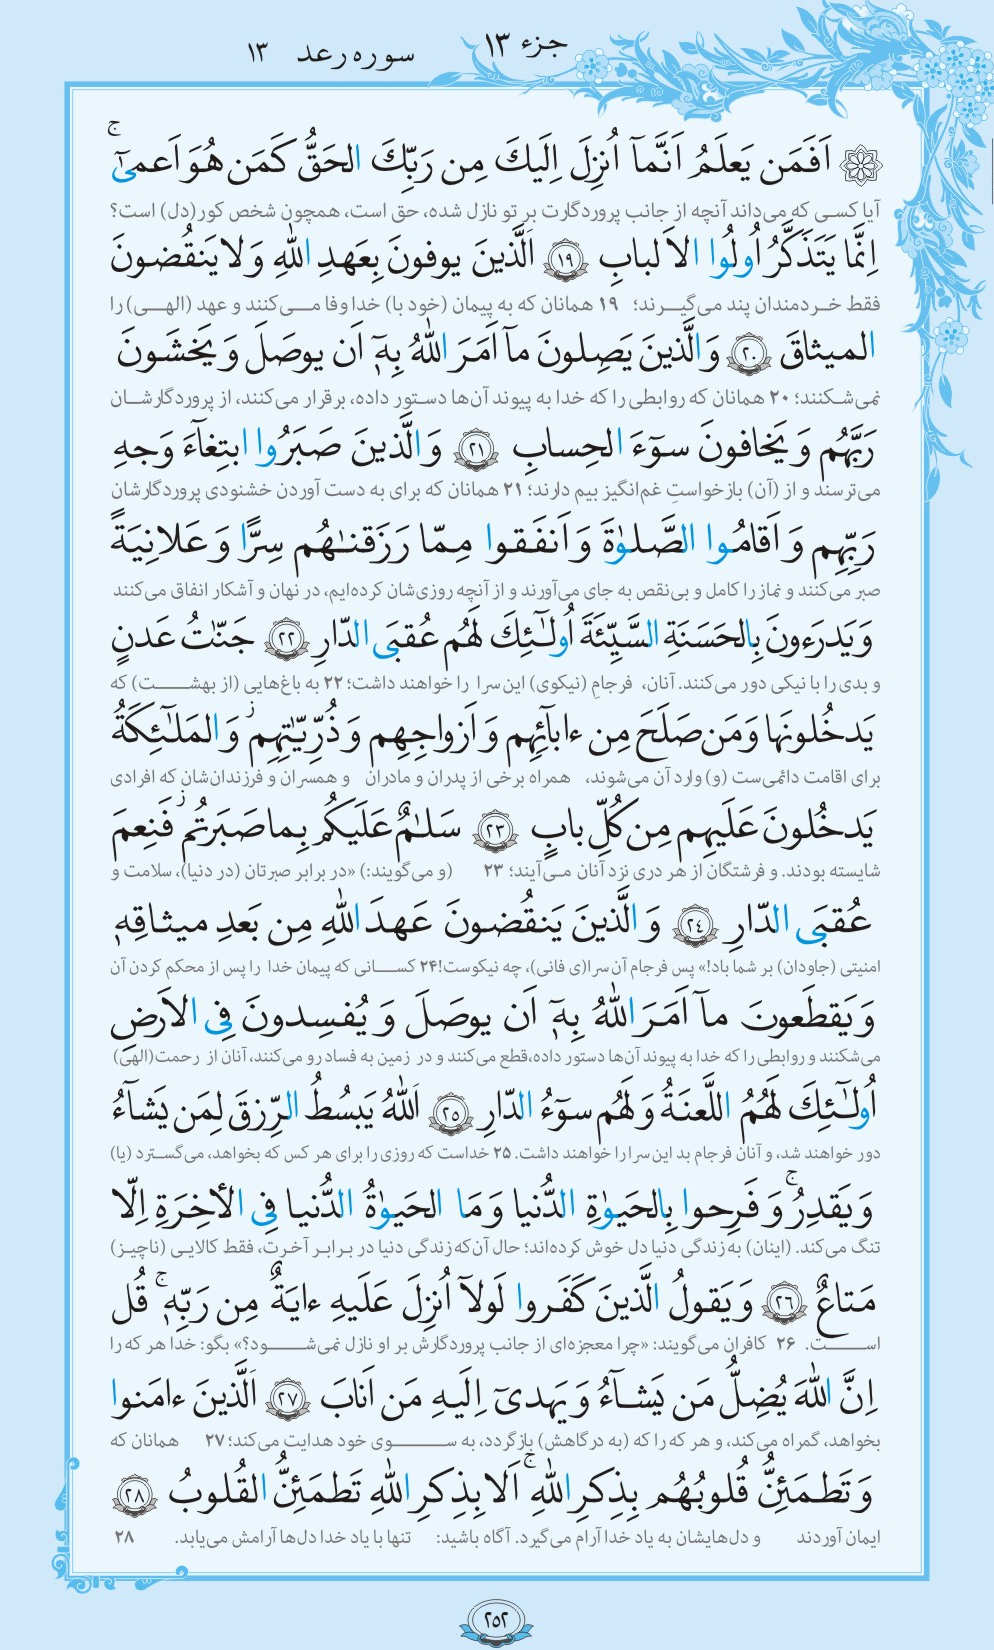 جزء ۱۳
سوره رعد ۱۳
اَفَمَن يَعلَمُ اَنَّمآ اُنزِلَ اِلَيكَ مِن رَبِّكَ الحَقُّ كَمَن هُوَ اَعمىٰٓ ۚ
آیا کسی که می‌داند آنچه از جانب پروردگارت بر تو نازل شده، حق است، همچون شخص کور(دل) است؟
اِنَّما يَتَذَكَّرُ اُولُوا الاَلبابِ ﴿١٩﴾ اَلَّذينَ يوفونَ بِعَهدِ اللّٰهِ وَ لا يَنقُضونَ
فقط خردمندان پند می‌گیرند؛ ۱۹ همانان که به پیمان (خود با) خدا وفا می‌کنند و عهد (الهی) را
الميثاقَ ﴿٢٠﴾ وَ الَّذينَ يَصِلونَ مآ اَمَرَ اللّٰهُ بِهٖٓ اَن يوصَلَ وَ يَخشَونَ
نمی‌شکنند؛ ۲۰ همانان که روابطی را که خدا به پیوند آن‌ها دستور داده، برقرار می‌کنند، از پروردگارشان
رَبَّهُم وَ يَخافونَ سوٓءَ الحِسابِ ﴿٢١﴾ وَ الَّذينَ صَبَرُوا ابتِغآءَ وَجهِ
می‌ترسند و از (آن) بازخواستِ غم‌انگیز بیم دارند؛ ۲۱ همانان که برای به دست آوردن خشنودی پروردگارشان
رَبِّهِم وَ اَقامُوا الصَّلوٰةَ وَ اَنفَقوا مِمّا رَزَقنٰهُم سِرًّا وَ عَلانِيَةً
صبر می‌کنند و نماز را کامل و بی‌نقص به جای می‌آورند و از آنچه روزی‌شان کرده‌ایم، در نهان و آشکار انفاق می‌کنند
وَ يَدرَءونَ بِالحَسَنَةِ السَّيِّئَةَ اُولٰٓئِكَ لَهُم عُقبَى الدّارِ ﴿٢٢﴾ جَنّٰتُ عَدنٍ
و بدی را با نیکی دور می‌کنند. آنان، فرجامِ (نیکوی) این سرا را خواهند داشت؛ ۲۲ به باغ‌هایی (از بهشت) که
يَدخُلونَها وَ مَن صَلَحَ مِن ءابآئِهِم وَ اَزواجِهِم وَ ذُرِّيّٰتِهِم ۖ وَ المَلٰٓئِكَةُ
برای اقامت دائمی‌ست (و) وارد آن می‌شوند، همراه برخی از پدران و مادران و همسران و فرزندان‌شان که افرادی
يَدخُلونَ عَلَيهِم مِن كُلِّ بابٍ ﴿٢٣﴾ سَلٰمٌ عَلَيكُم بِما صَبَرتُم ۚ فَنِعمَ
شایسته بودند. و فرشتگان از هر دری نزد آنان می‌آیند؛ ۲۳ (و می‌گویند:) «در برابر صبرتان (در دنیا)، سلامت و
عُقبَى الدّارِ ﴿٢٤﴾ وَ الَّذينَ يَنقُضونَ عَهدَ اللّٰهِ مِن بَعدِ ميثاقِهٖ
امنیتی (جاودان) بر شما باد!» پس فرجام آن سرا(ی فانی)، چه نیکوست! ۲۴ کسانی که پیمان خدا را پس از محکم کردن آن
وَ يَقطَعونَ مآ اَمَرَ اللّٰهُ بِهٖٓ اَن يوصَلَ وَ يُفسِدونَ فِى الاَرضِ
می‌شکنند و روابطی را که خدا به پیوند آن‌ها دستور داده، قطع می‌کنند و در زمین به فساد رو می‌کنند، آنان از رحمت (الهی)
اُولٰٓئِكَ لَهُمُ اللَّعنَةُ وَ لَهُم سوٓءُ الدّارِ ﴿٢٥﴾ اَللّٰهُ يَبسُطُ الرِّزقَ لِمَن يَشآءُ
دور خواهند شد، و آنان فرجام بد این سرا را خواهند داشت. ۲۵ خداست که روزی را برای هر کس که بخواهد، می‌گسترد (یا)
وَ يَقدِرُ ۚ وَ فَرِحوا بِالحَيوٰةِ الدُّنيا وَ مَا الحَيوٰةُ الدُّنيا فِى الأخِرَةِ اِلّا
تنگ می‌کند. (اینان) به زندگی دنیا دل خوش کرده‌اند؛ حال آن‌که زندگی دنیا در برابر آخرت، فقط کالایی (ناچیز)
مَتاعٌ ﴿٢٦﴾ وَ يَقولُ الَّذينَ كَفَروا لَولآ اُنزِلَ عَلَيهِ ءايَةٌ مِن رَبِّهٖ ۚ قُل
است. ۲۶ کافران می‌گویند: «چرا معجزه‌ای از جانب پروردگارش بر او نازل نمی‌شود؟» بگو: خدا هر که را
اِنَّ اللّٰهَ يُضِلُّ مَن يَشآءُ وَ يَهدىٓ اِلَيهِ مَن اَنابَ ﴿٢٧﴾ اَلَّذينَ ءامَنوا
بخواهد، گمراه می‌کند، و هر که را که (به درگاهش) بازگردد، به سوی خود هدایت می‌کند؛ ۲۷ همانان که
وَ تَطمَئِنُّ قُلوبُهُم بِذِكرِ اللّٰهِ ۚ اَلا بِذِكرِ اللّٰهِ تَطمَئِنُّ القُلوبُ ﴿٢٨﴾
ایمان آوردند و دل‌هایشان به یاد خدا آرام می‌گیرد. آگاه باشید: تنها با یاد خدا دل‌ها آرامش می‌یابد. ۲۸
۲۵۲